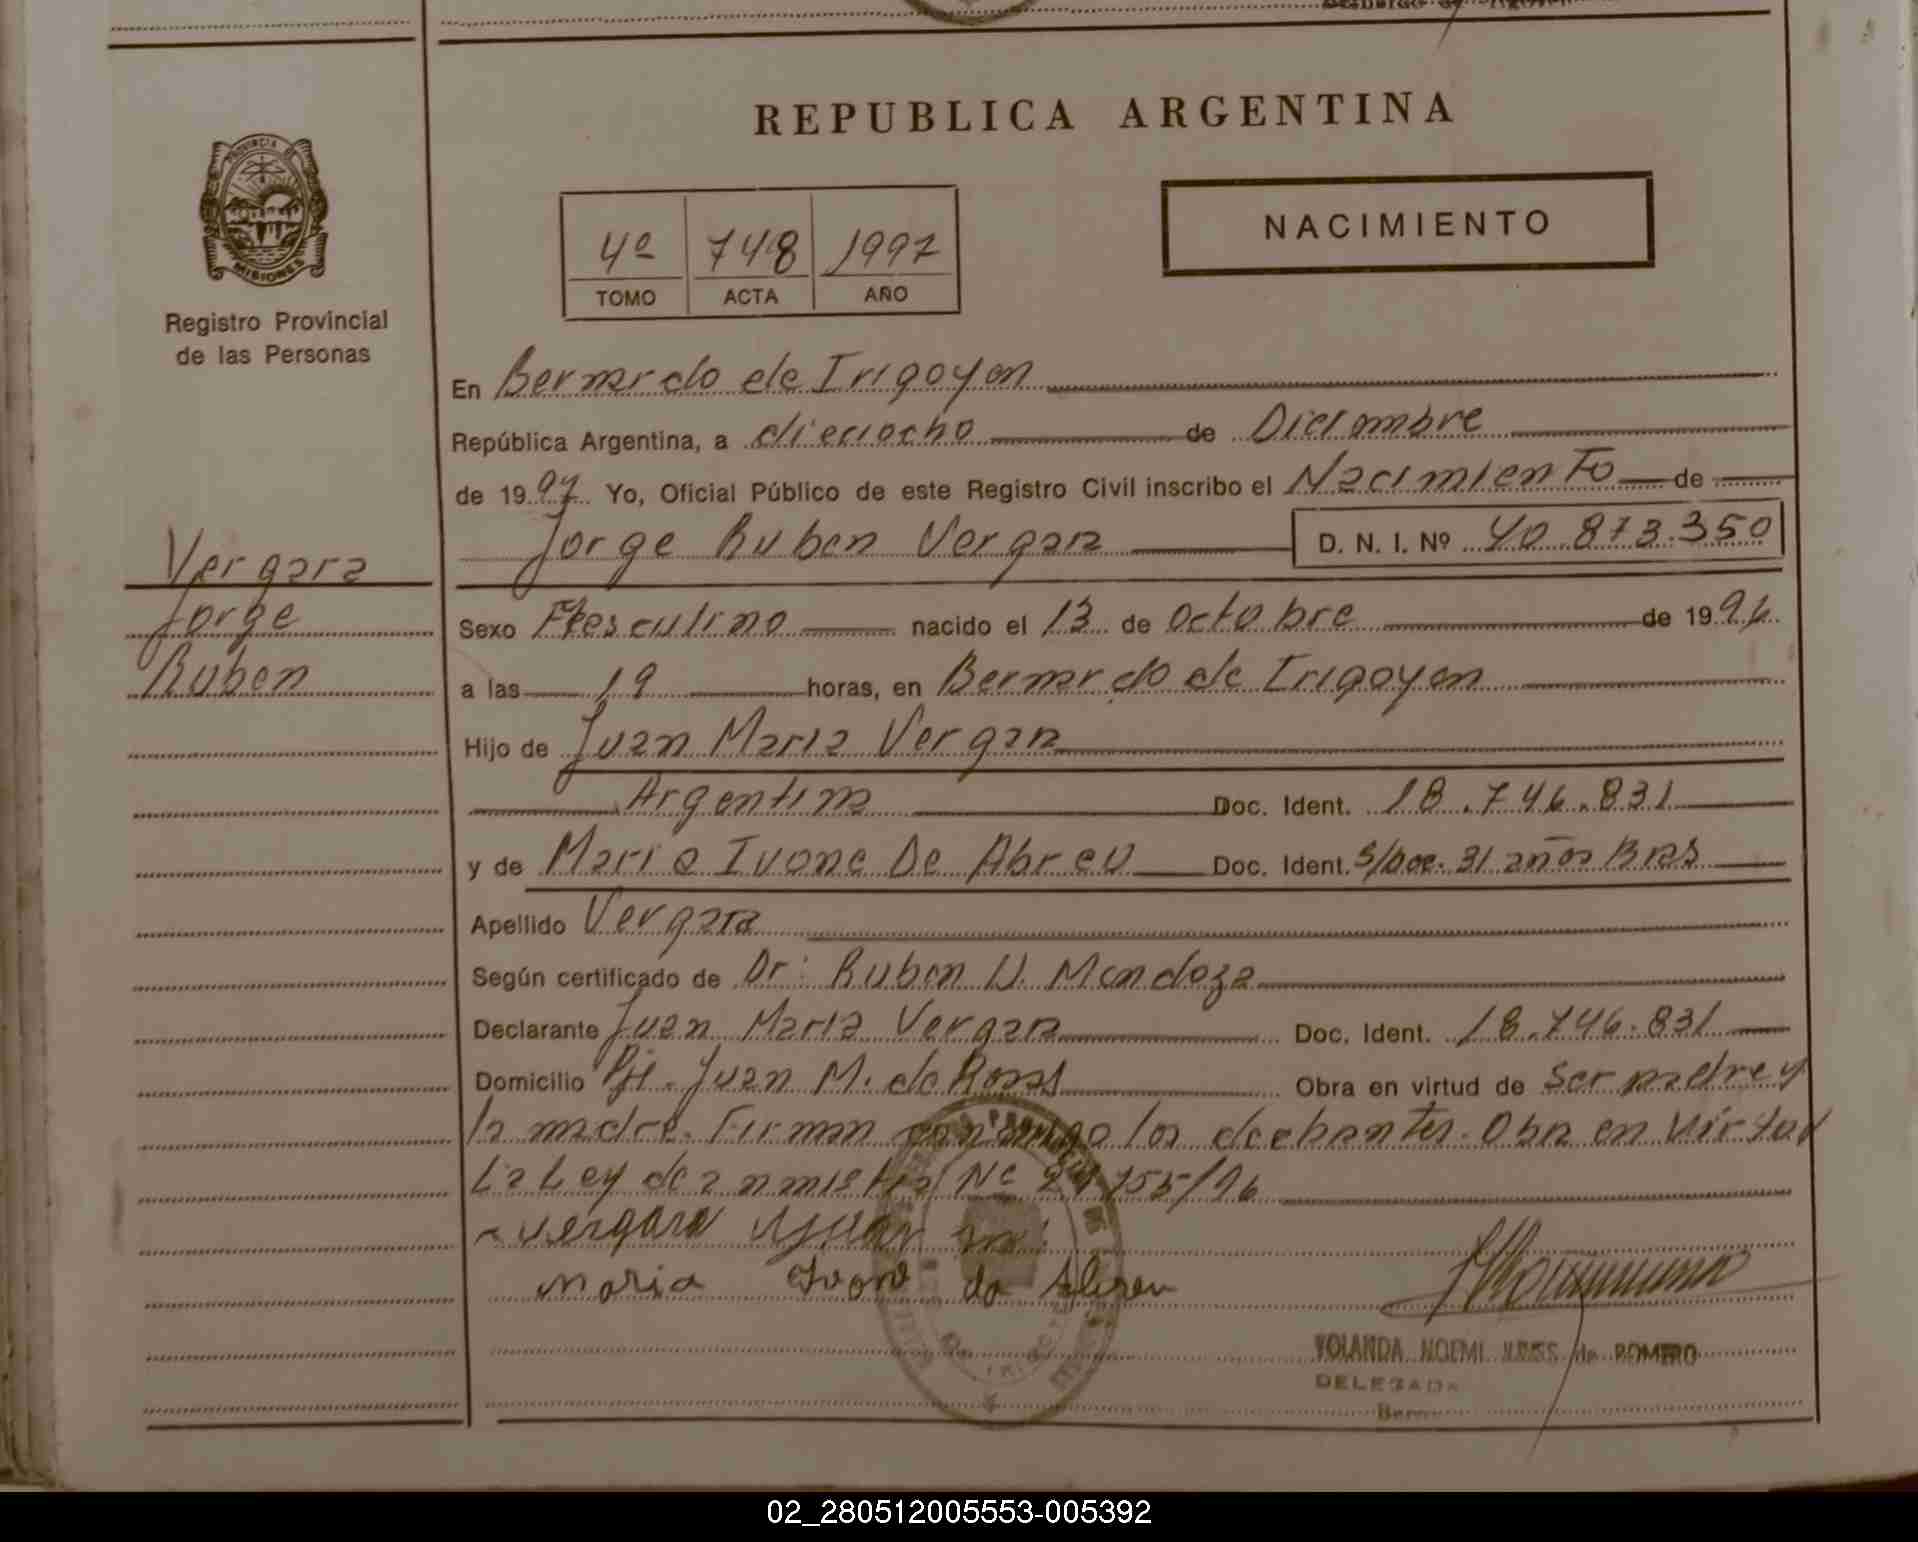 REPUBLICA ARGENTINA
PROVINCIA DE
MISIONES
Registro Provincial
de las Personas
4º 748 1997
TOMO ACTA AÑO
NACIMIENTO
En Bernardo de Irigoyen
República Argentina, a dieciocho de Diciembre
de 1997 Yo, Oficial Público de este Registro Civil inscribo el Nacimiento de
Jorge Ruben Vergara D. N. I. Nº 40.873.350
Vergara
Jorge
Ruben
Sexo Masculino nacido el 13 de Octubre de 1996.
a las 19 horas, en Bernardo de Irigoyen
Hijo de Juan Maria Vergara
Argentina Doc. Ident. 18.746.831
y de Maria Ivone De Abreu Doc. Ident. S/Doc. 31 años Bras
Apellido Vergara
Según certificado de Dr: Ruben D. Mendoza
Declarante Juan Maria Vergara Doc. Ident. 18.746.831
Domicilio Pje. Juan M. de Rosas Obra en virtud de ser padre y
la madre. Firman conmigo los Obra en Virtud
La Ley de amnistia Nº 24.755/96
Vergara Juan ma
Maria Ivone de Abreu
YOLANDA NOEMI de ROMERO
DELEGADA
02_280512005553-005392